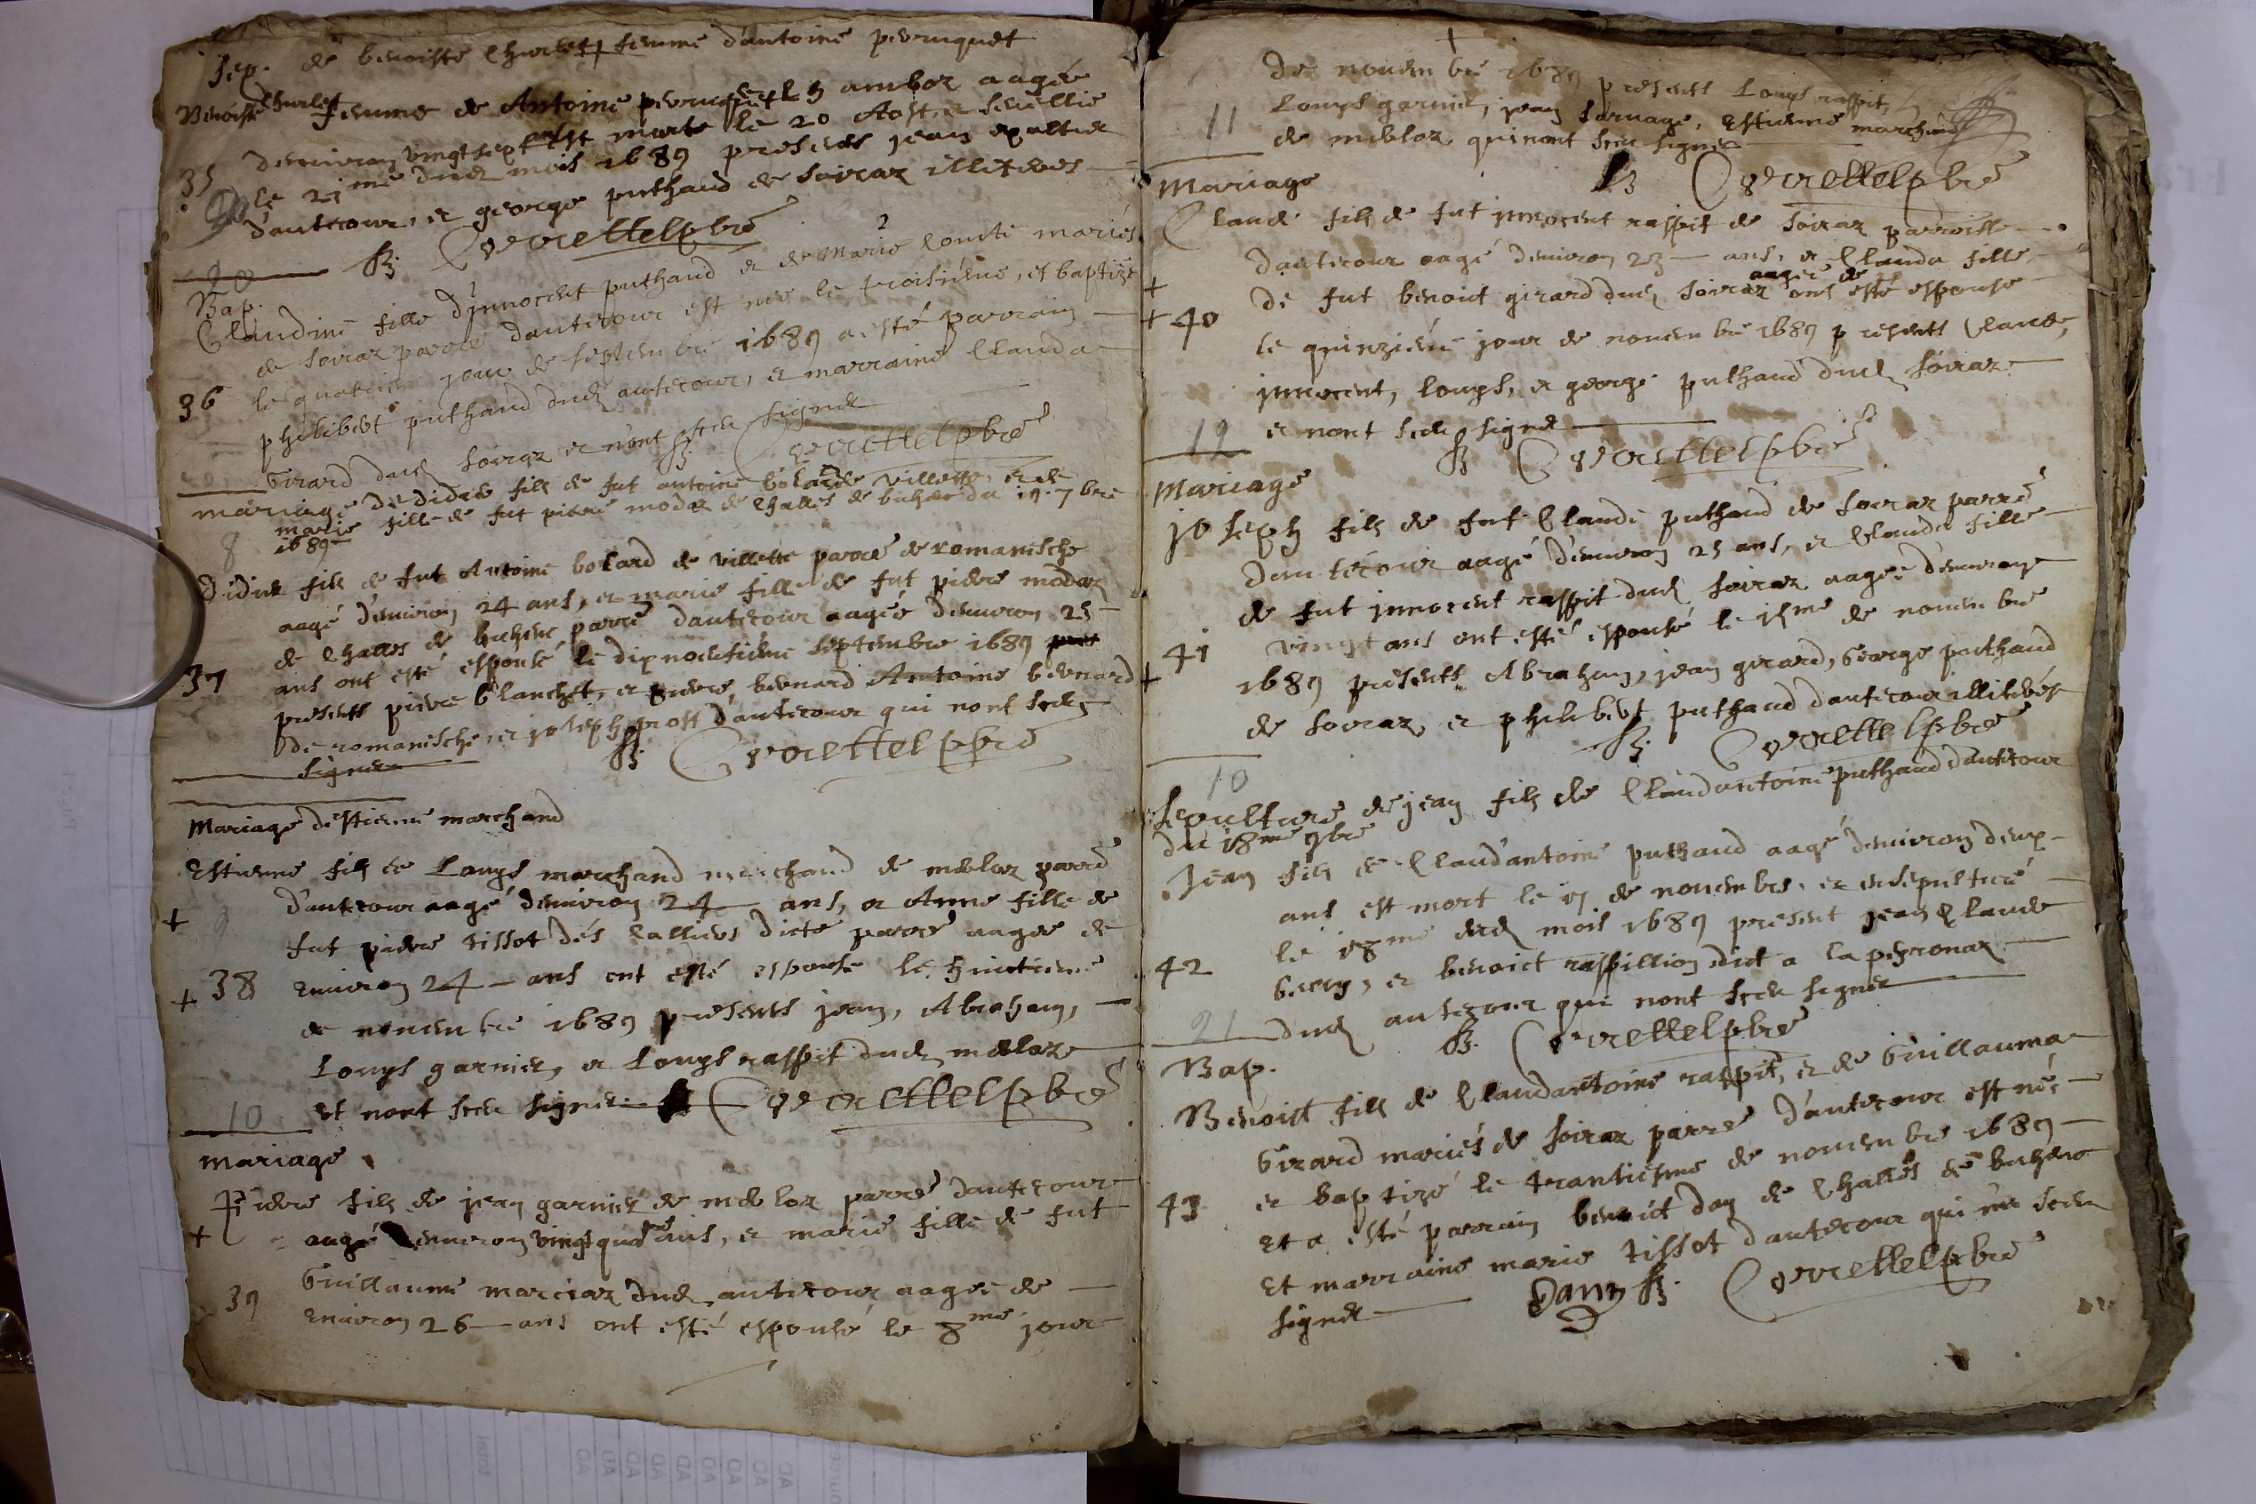 Sep. de benoiste Churlet femme d'antoine perruquet
Benoiste Churlet femme de Antoine perruquet aagée
d'environ vingt sept est morte le 20 Aost, et sevellie
35 le 21me dud mois 1689 presents jean
d'autecour, et george puthaud de soiraz illiteres
Bap.
Claudine fille d'innocent puthaud et de marie mariés
de soiraz parroe d'autecour est née le troisieme, et baptizé
le quatrieme jour de septembre 1689 a esté parrain
36 philibert puthaud dud autecour, et marraine Clauda
Girard dud soiraz et n'ont sceu signer
mariage de didier fils de fut antoine bolard de villette et de
marie fille de fut pierre modaz de Challes de buhere du 19. 7bre
1689
8
Didier fils de fut Antoine bolard de villette parroe de romanesche
aagé d'environ 24 ans, et marie fille de fut pierre modaz
de Challes de buhere parroe d'autecour aagée d'environ 25
37 ans ont esté espousé le dixneufieme septembre 1689
presents pierre blanchet, et pierre, bernard Antoine bernard
de romanesche, et joseph prost d'autecour qui n'ont sceu
signer
Mariage d'estienne marchand
Estienne fils de Louys marchand marchand de mebloz parroe
d'autecour aagé d'environ 24 ans, et Anne fille de
9 fut pierre tissot dés dicte parroe aagée de
38 environ 24 ans ont esté espousé le huictieme
de novembre 1689 presents jean, Abraham,
Louys garnier, et Louys raffit dud mebloz
et n'ont sceu signer
10
mariage
Pierre fils de jean garnier de mebloz parroe d'autecour
aagé d'environ vingt quatre ans, et marie fille de fut
Guillaume marciaz dud autecour aagée de
39 environ 26 ans ont esté espousé le 8me jour
de novembre 1689 presents Louys raffit,
11 Louys garnier, jean, Estienne marchand
de mebloz qui n'ont sceu signer
Mariage
Claude fils de fut innocent raffit de soiraz parroisse
d'autecour aagé d'environ 23 ans, et Clauda fille
aagée de
40 de fut benoict girard dud soiraz ont esté espousé
le quinzieme jour de novembre 1689 presents Claude,
innocent, Louys, et george puthaud dud soiraz
et n'ont sceu signer
12
Mariage
joseph fils de fut Claude puthaud de soiraz parroe
d'autecour aagé d'environ 25 ans, et Clauda fille
de fut innocent raffit dud soiraz aagée d'environ
41 vingt ans ont esté espousé le 15me de novembre
1689 presents Abraham, jean girard, George puthaud
de soiraz, et philibert puthaud d'autecour illiterés
10
Sepulture de jean fils de Claudantoine puthaud d'autecour
du 18me 9bre
Jean fils de Claudantoine puthaud aagé d'environ deux
ans est mort le 17 de novembre, et ensepulturé
le 18me dud mois 1689 present jean Claude
42 et benoict raffillion dict a la
dud autecour qui n'ont sceu signer
21
Bap.
Benoist fils de Claudantoine raffit, et de Guillauma
Girard mariés de soiraz parroe d'autecour est né
43 et baptizé le trantiesme de novembre 1689
Et a esté parrain benoict dan de Challes de buhere
Et marraine marie tissot d'autecour qui n'a sceu
signer